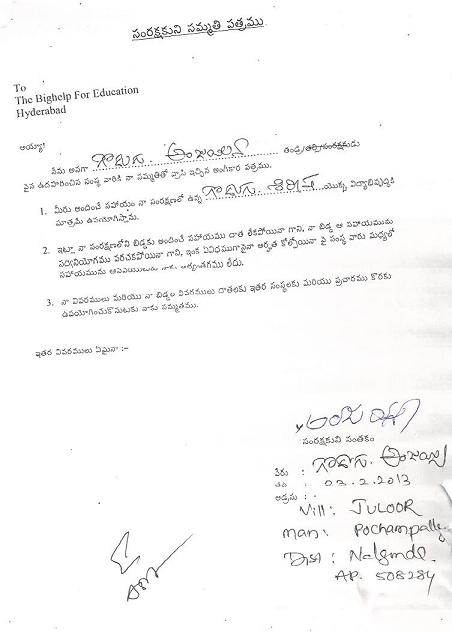 సంరక్షకుని సమ్మతి పత్రము
To
The Bighelp For Education
Hyderabad
అయ్యా!
నేను అనగా గాదుగు. అంజయ్య తండ్రి/తల్లి/సంరక్షకుడు
పైన ఉదహరించిన సంస్థ వారికి నా సమ్మతితో వ్రాసి ఇచ్చిన అంగీకార పత్రము.
1. మీరు అందించే సహాయం నా సంరక్షణలో ఉన్న గాదుగు. శిరీష యొక్క విద్యాభివృద్ధికి
మాత్రమే ఉపయోగిస్తాను.
2. ఇట్లు నా సంరక్షణలోని బిడ్డకు అందించే సహాయము దాత లేకపోయినా గాని, నా బిడ్డ ఆ సహాయమును
సద్వినియోగము పరచకపోయినా గాని, ఇంక ఏవిధముగానైనా అర్హత కోల్పోయినా పై సంస్థ వారు మధ్యలో
సహాయమును ఆపివేయుటకు నాకు అభ్యంతరము లేదు.
3. నా వివరములు మరియు నా బిడ్డల వివరములు దాతలకు ఇతర సంస్థలకు మరియు ప్రచారము కొరకు
ఉపయోగించుకొనుటకు నాకు సమ్మతము.
ఇతర వివరములు ఏమైనా :-
సంరక్షకుని సంతకం
పేరు : గాదుగు. అంజయ్య
తేది : 02.2.2013
అడ్రసు : Vill: JULOOR
Man: Pochampally
Dist: Nalgonda
AP. 508284